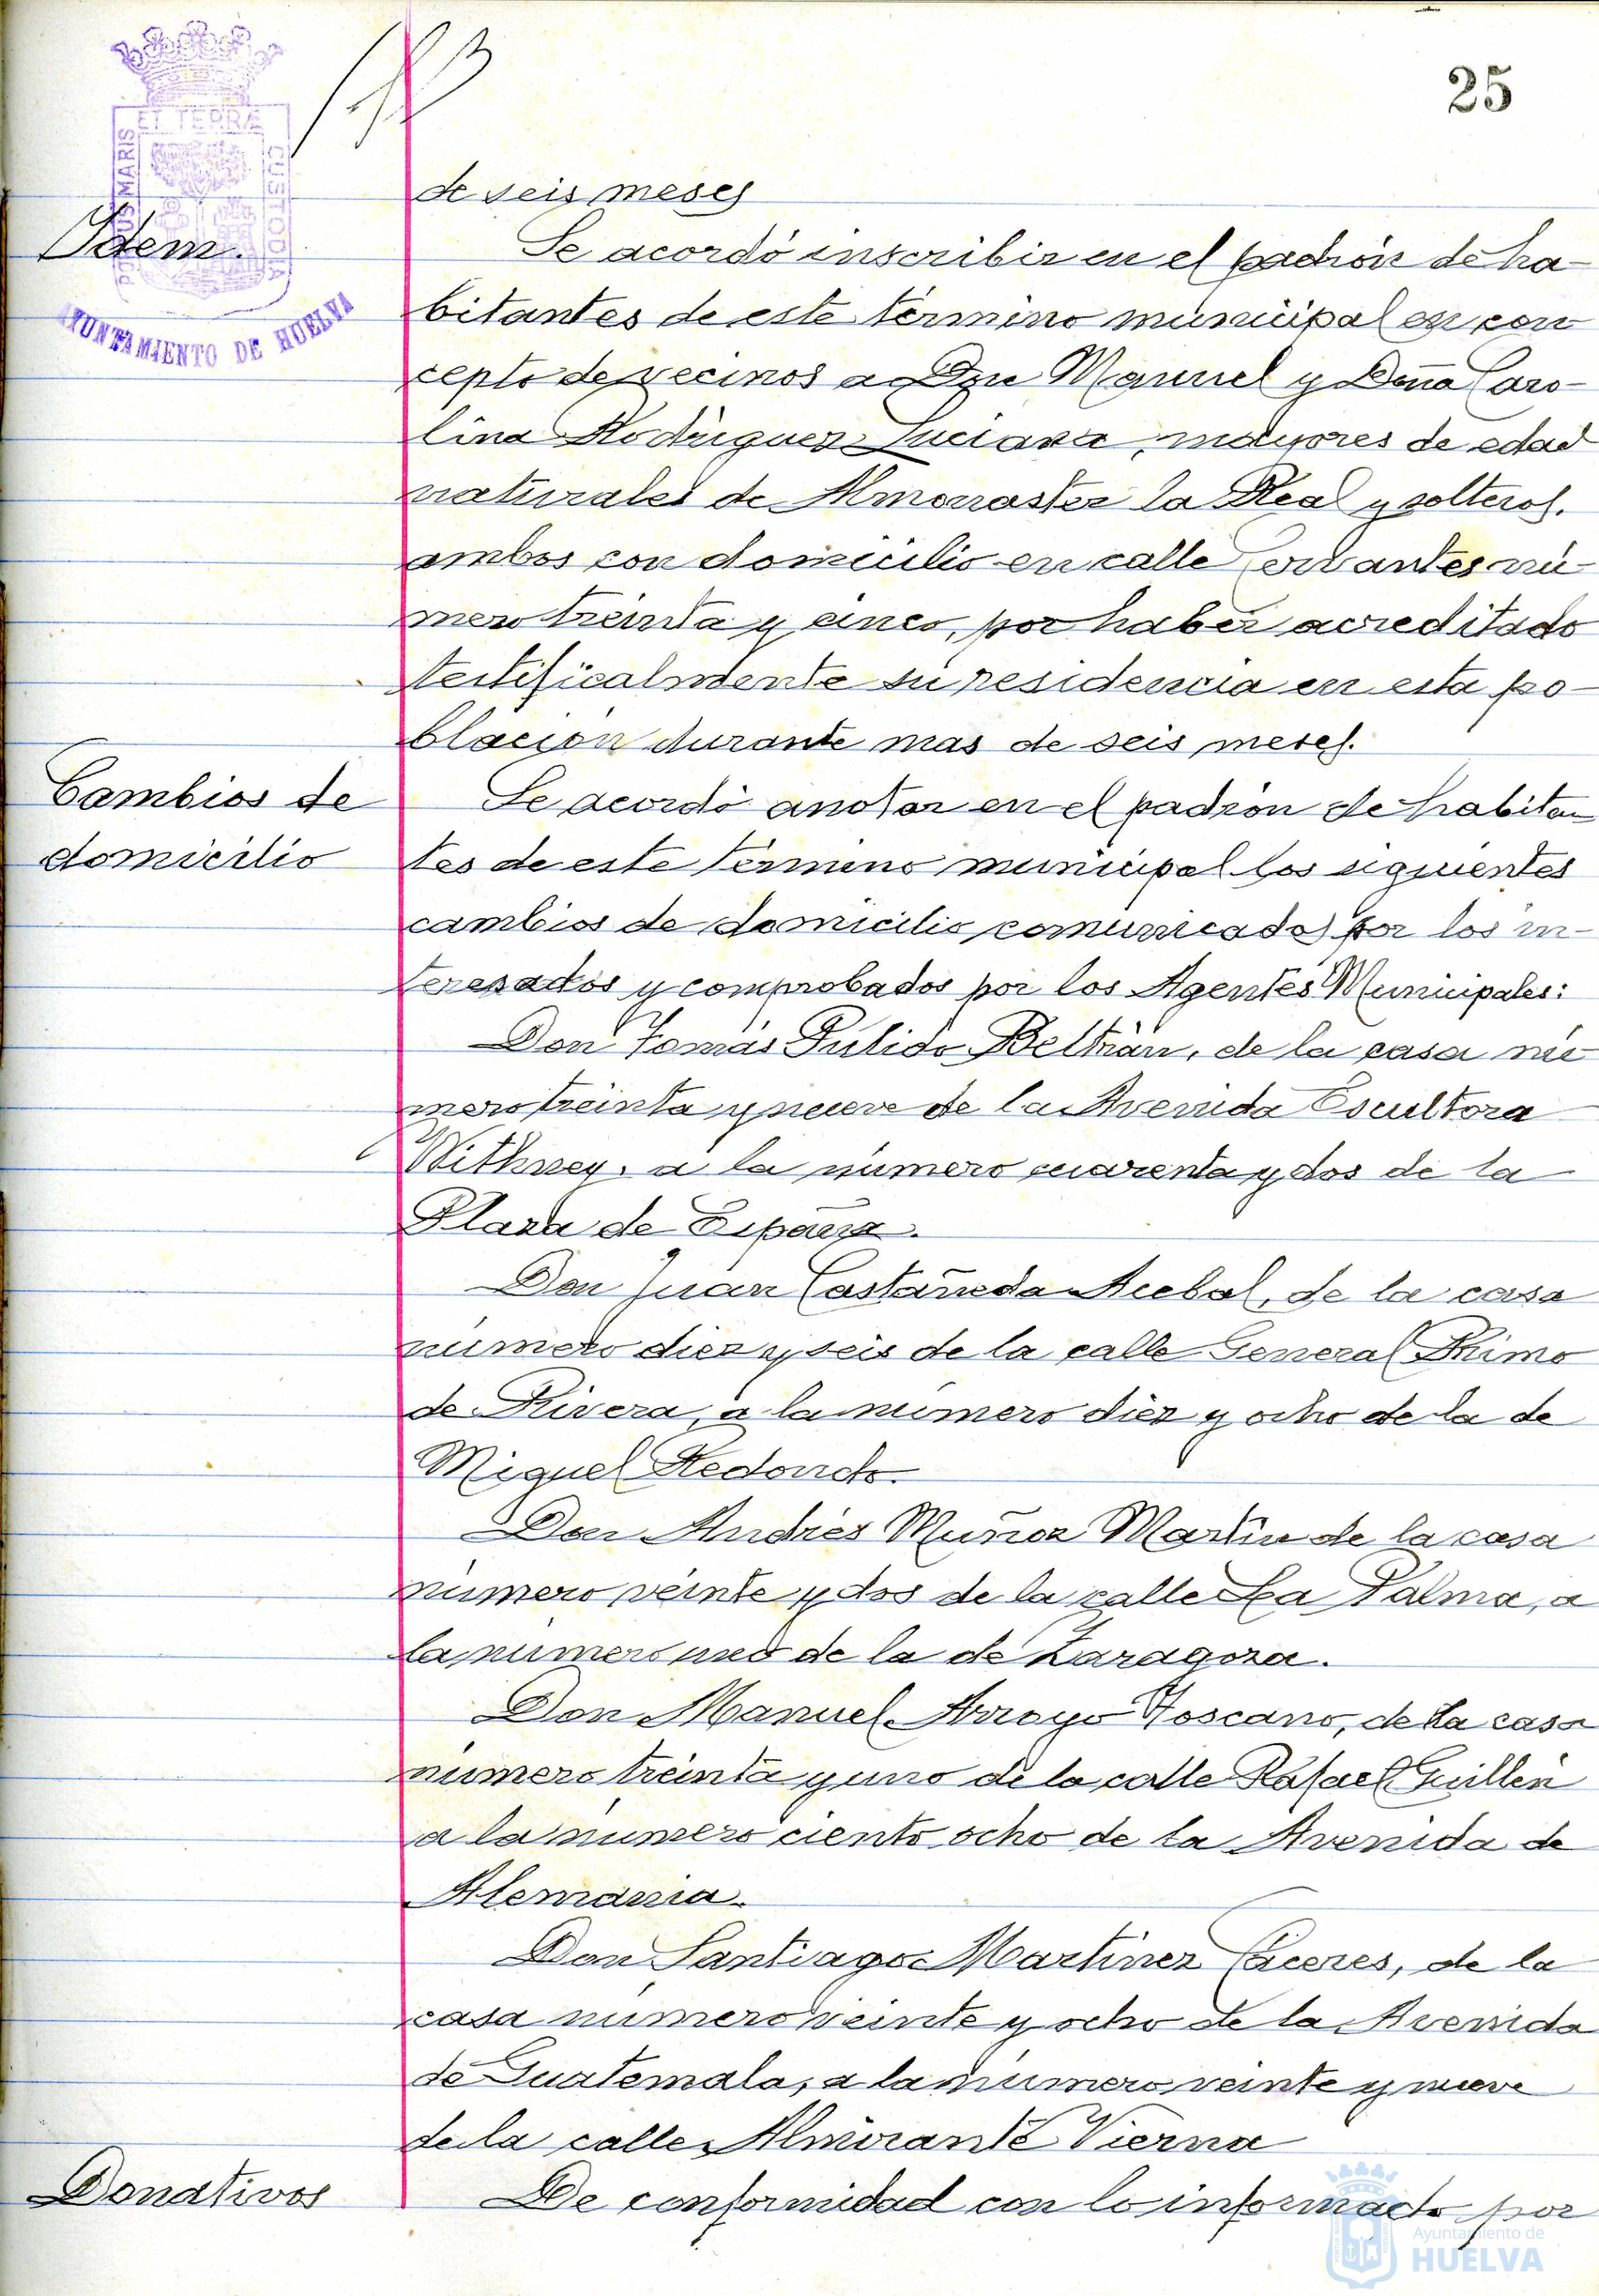 25
ET TERRÆ
PORTUS MARIS
CUSTODIA
AYUNTAMIENTO DE HUELVA
de seis meses
Idem.
Se acordó inscribir en el padrón de ha-
bitantes de este término municipal en con
cepto de vecinos a Don Manuel y Dña Caro-
lina Rodríguez Luciana, mayores de edad
naturales de Almonaster la Real y solteros.
ambos con domicilio en calle Cervantes nú-
mero treinta y cinco, por haber acreditado
testificalmente su residencia en esta po-
blación durante mas de seis meses.
Cambios de
domicilio
Se acordó anotar en el padrón de habitan
tes de este término municipal los siguientes
cambios de domicilio comunicados por los in-
teresados y comprobados por los Agentes Municipales:
Don Tomás Pulido Beltrán, de la casa nú
mero treinta y nueve de la Avenida Escultora
Withney, a la número cuarenta y dos de la
Plaza de España.
Don Juan Castañeda Acebal, de la casa
número diez y seis de la calle General Primo
de Rivera, a la número diez y ocho de la de
Miguel Redondo.
Don Andrés Muñoz Martín de la casa
número veinte y dos de la calle La Palma, a
la número uno de la de Zaragoza.
Don Manuel Arroyo Toscano, de la casa
número treinta y uno de la calle Rafael Guillén
a la número ciento ocho de la Avenida de
Alemania.
Don Santiago Martínez Cáceres, de la
casa número veinte y ocho de la Avenida
de Guatemala, a la número veinte y nueve
de la calle Almirante Vierna
Donativos
De conformidad con lo informado por
Ayuntamiento de
HUELVA